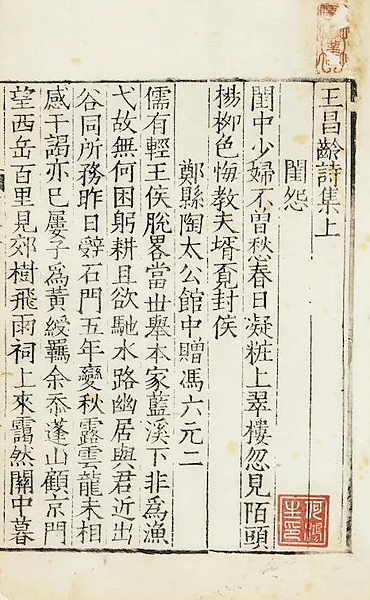 王昌齡詩集上
閨怨
閨中少婦不曽愁春日凝粧上翠樓忽見陌頭
楊柳色悔教夫壻覔封侯
鄭縣陶太公館中贈馮六元二
儒有輕王侯脫畧當世舉本家藍溪下非為漁
弋故無何困躬耕且欲馳水路幽居與君近出
谷同所務昨日辤石門五年變秋露雲龍未相
感干謁亦已屢子為黃綬羈余忝蓬山顧京門
望西岳百里見郊樹飛雨祠上來靄然關中暮